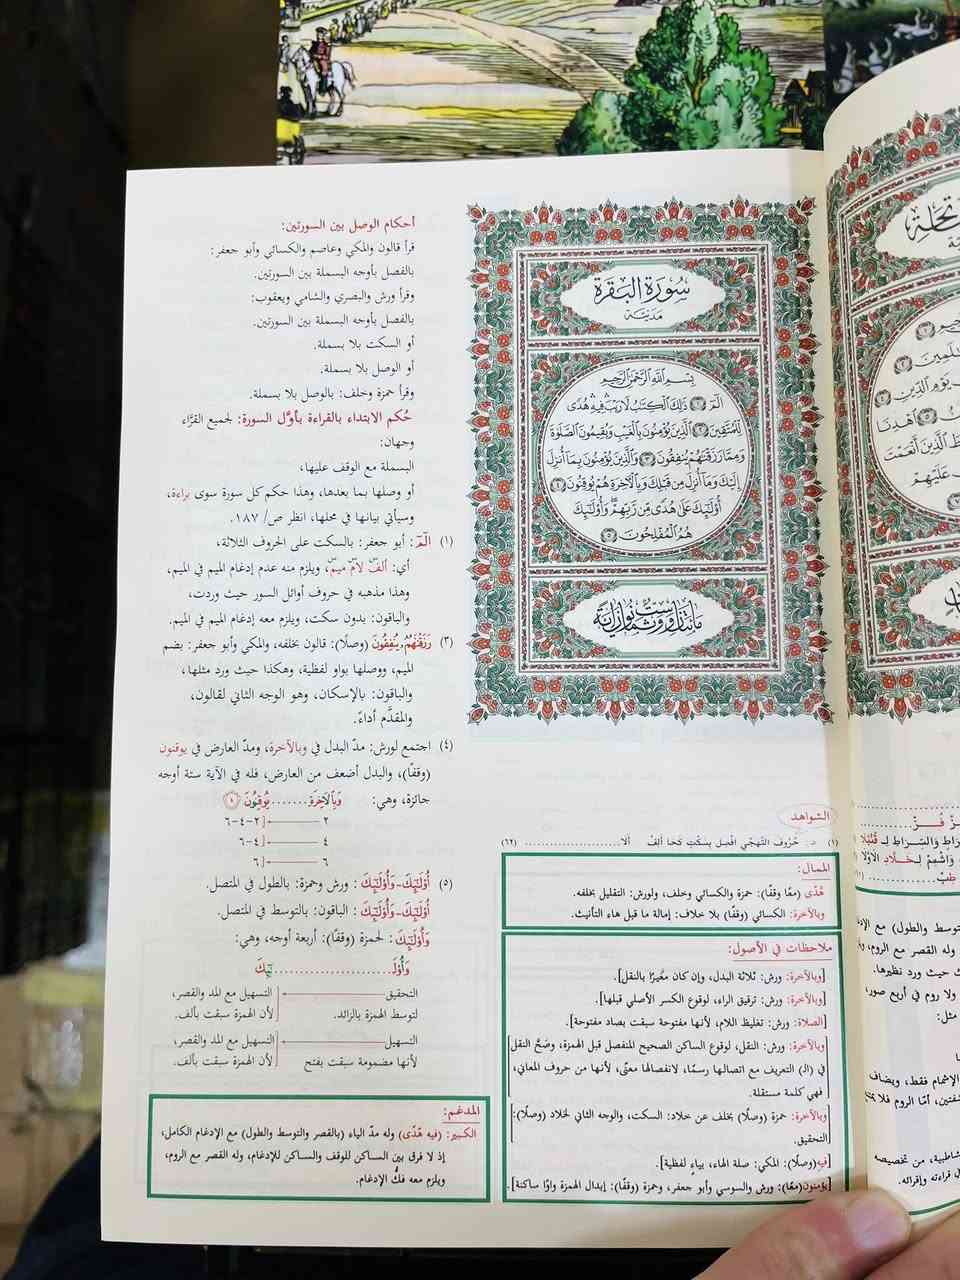 سُورَةُ البَقَرَة
مَدَنِيَّة
بِسْمِ اللَّهِ الرَّحْمَٰنِ الرَّحِيمِ
الٓمٓ ١ ذَٰلِكَ ٱلْكِتَٰبُ لَا رَيْبَ فِيهِ هُدًى
لِّلْمُتَّقِينَ ٢ ٱلَّذِينَ يُؤْمِنُونَ بِٱلْغَيْبِ وَيُقِيمُونَ ٱلصَّلَوٰةَ
وَمِمَّا رَزَقْنَٰهُمْ يُنفِقُونَ ٣ وَٱلَّذِينَ يُؤْمِنُونَ بِمَآ أُنزِلَ
إِلَيْكَ وَمَآ أُنزِلَ مِن قَبْلِكَ وَبِٱلْءَاخِرَةِ هُمْ يُوقِنُونَ ٤
أُو۟لَٰٓئِكَ عَلَىٰ هُدًى مِّن رَّبِّهِمْ وَأُو۟لَٰٓئِكَ
هُمُ ٱلْمُفْلِحُونَ ٥
أحكام الوصل بين السورتين:
قرأ قالون والمكي وعاصم والكسائي وأبو جعفر:
بالفصل بأوجه البسملة بين السورتين.
وقرأ ورش والبصري والشامي ويعقوب:
بالفصل بأوجه البسملة بين السورتين.
أو السكت بلا بسملة.
أو الوصل بلا بسملة.
وقرأ حمزة وخلف: بالوصل بلا بسملة.
حُكم الابتداء بالقراءة بأوَّل السورة: لجميع القرَّاء
وجهان:
البسملة مع الوقف عليها،
أو وصلها بما بعدها، وهذا حكم كل سورة سوى براءة،
وسيأتي بيانها في محلها، انظر ص/ ١٨٧.
(١) الٓمٓ: أبو جعفر: بالسكت على الحروف الثلاثة،
أي: ألفْ لآمْ ميمْ، ويلزم منه عدم إدغام الميم في الميم،
وهذا مذهبه في حروف أوائل السور حيث وردت،
والباقون: بدون سكت، ويلزم معه إدغام الميم في الميم.
(٣) رَزَقْنَٰهُمُۥ يُنفِقُونَ (وصلًا): قالون بخلفه، والمكي وأبو جعفر: بضم
الميم، ووصلها بواو لفظية، وهكذا حيث ورد مثلها،
والباقون: بالإسكان، وهو الوجه الثاني لقالون،
والمقدَّم أداءً.
(٤) اجتمع لورش: مدّ البدل في وبالآخرة، ومدّ العارض في يوقنون
(وقفًا)، والبدل أضعف من العارض، فله في الآية ستة أوجه
جائزة، وهي: وَبِٱلْءَاخِرَةِ.......يُوقِنُونَ ٤
٢ ٢-٤-٦
٤ ٤-٦
٦ ٦
(٥) أُوْلَٰٓئِكَ-وَأُوْلَٰٓئِكَ: ورش وحمزة: بالطول في المتصل.
أُوْلَٰٓئِكَ-وَأُوْلَٰٓئِكَ: الباقون: بالتوسط في المتصل.
وَأُوْلَٰٓئِكَ: لحمزة (وقفًا): أربعة أوجه، وهي:
وَأُوْلَ.....................ـٰٓئِكَ
التحقيق التسهيل مع المد والقصر،
لتوسط الهمزة بالزائد. لأن الهمزة سبقت بألف.
التسهيل التسهيل مع المد والقصر،
لأنها مضمومة سبقت بفتح لأن الهمزة سبقت بألف.
المدغم:
الكبير: (فيه هُدًى) وله مدّ الياء (بالقصر والتوسط والطول) مع الإدغام الكامل،
إذ لا فرق بين الساكن للوقف والساكن للإدغام، وله القصر مع الروم،
ويلزم معه فكُّ الإدغام.
الشواهد
(١) د: حُرُوفَ التَّهَجِّي افْصِل بِسَكْتٍ كَحَا أَلِفْ أَلَا.......................... (٦٢)
الممال:
هُدًى (معًا وقفًا): حمزة والكسائي وخلف، ولورش: التقليل بخلفه.
وبالآخرة: الكسائي (وقفًا) بلا خلاف: إمالة ما قبل هاء التأنيث.
ملاحظات في الأصول:
[وبالآخرة: ورش: ثلاثة البدل، وإن كان مغيرًا بالنقل].
[وبالآخرة: ورش: ترقيق الراء، لوقوع الكسر الأصلي قبلها].
[الصلاة: ورش: تغليظ اللام، لأنها مفتوحة سبقت بصاد مفتوحة].
[وبالآخرة: ورش: النقل، لوقوع الساكن الصحيح المنفصل قبل الهمزة، وصَحَّ النقل
في (الـ) التعريف مع اتصالها رسمًا، لانفصالها معنًى، لأنها من حروف المعاني،
فهي كلمة مستقلة.
[وبالآخرة: حمزة (وصلًا) بخلف عن خلاد: السكت، والوجه الثاني لخلاد (وصلًا):
التحقيق.
[فيه(وصلًا): المكي: صلة الهاء، بياءٍ لفظية].
[يؤمنون(معًا): ورش والسوسي وأبو جعفر، وحمزة (وقفًا): إبدال الهمزة واوًا ساكنة].